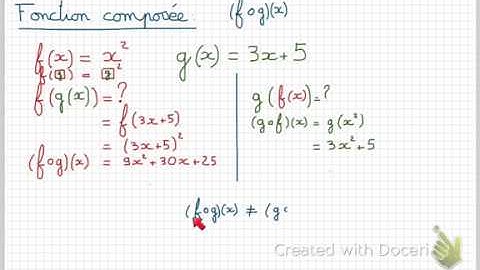 Fonction composée: (f∘g)(x)
f(x) = x²
g(x) = 3x+5
f(g(x)) = ?
= f(3x+5)
= (3x+5)²
(f∘g)(x) = 9x²+30x+25
g(f(x)) = ?
(g∘f)(x) = g(x²)
= 3x²+5
(f∘g)(x) ≠ (g
Created with Doceri